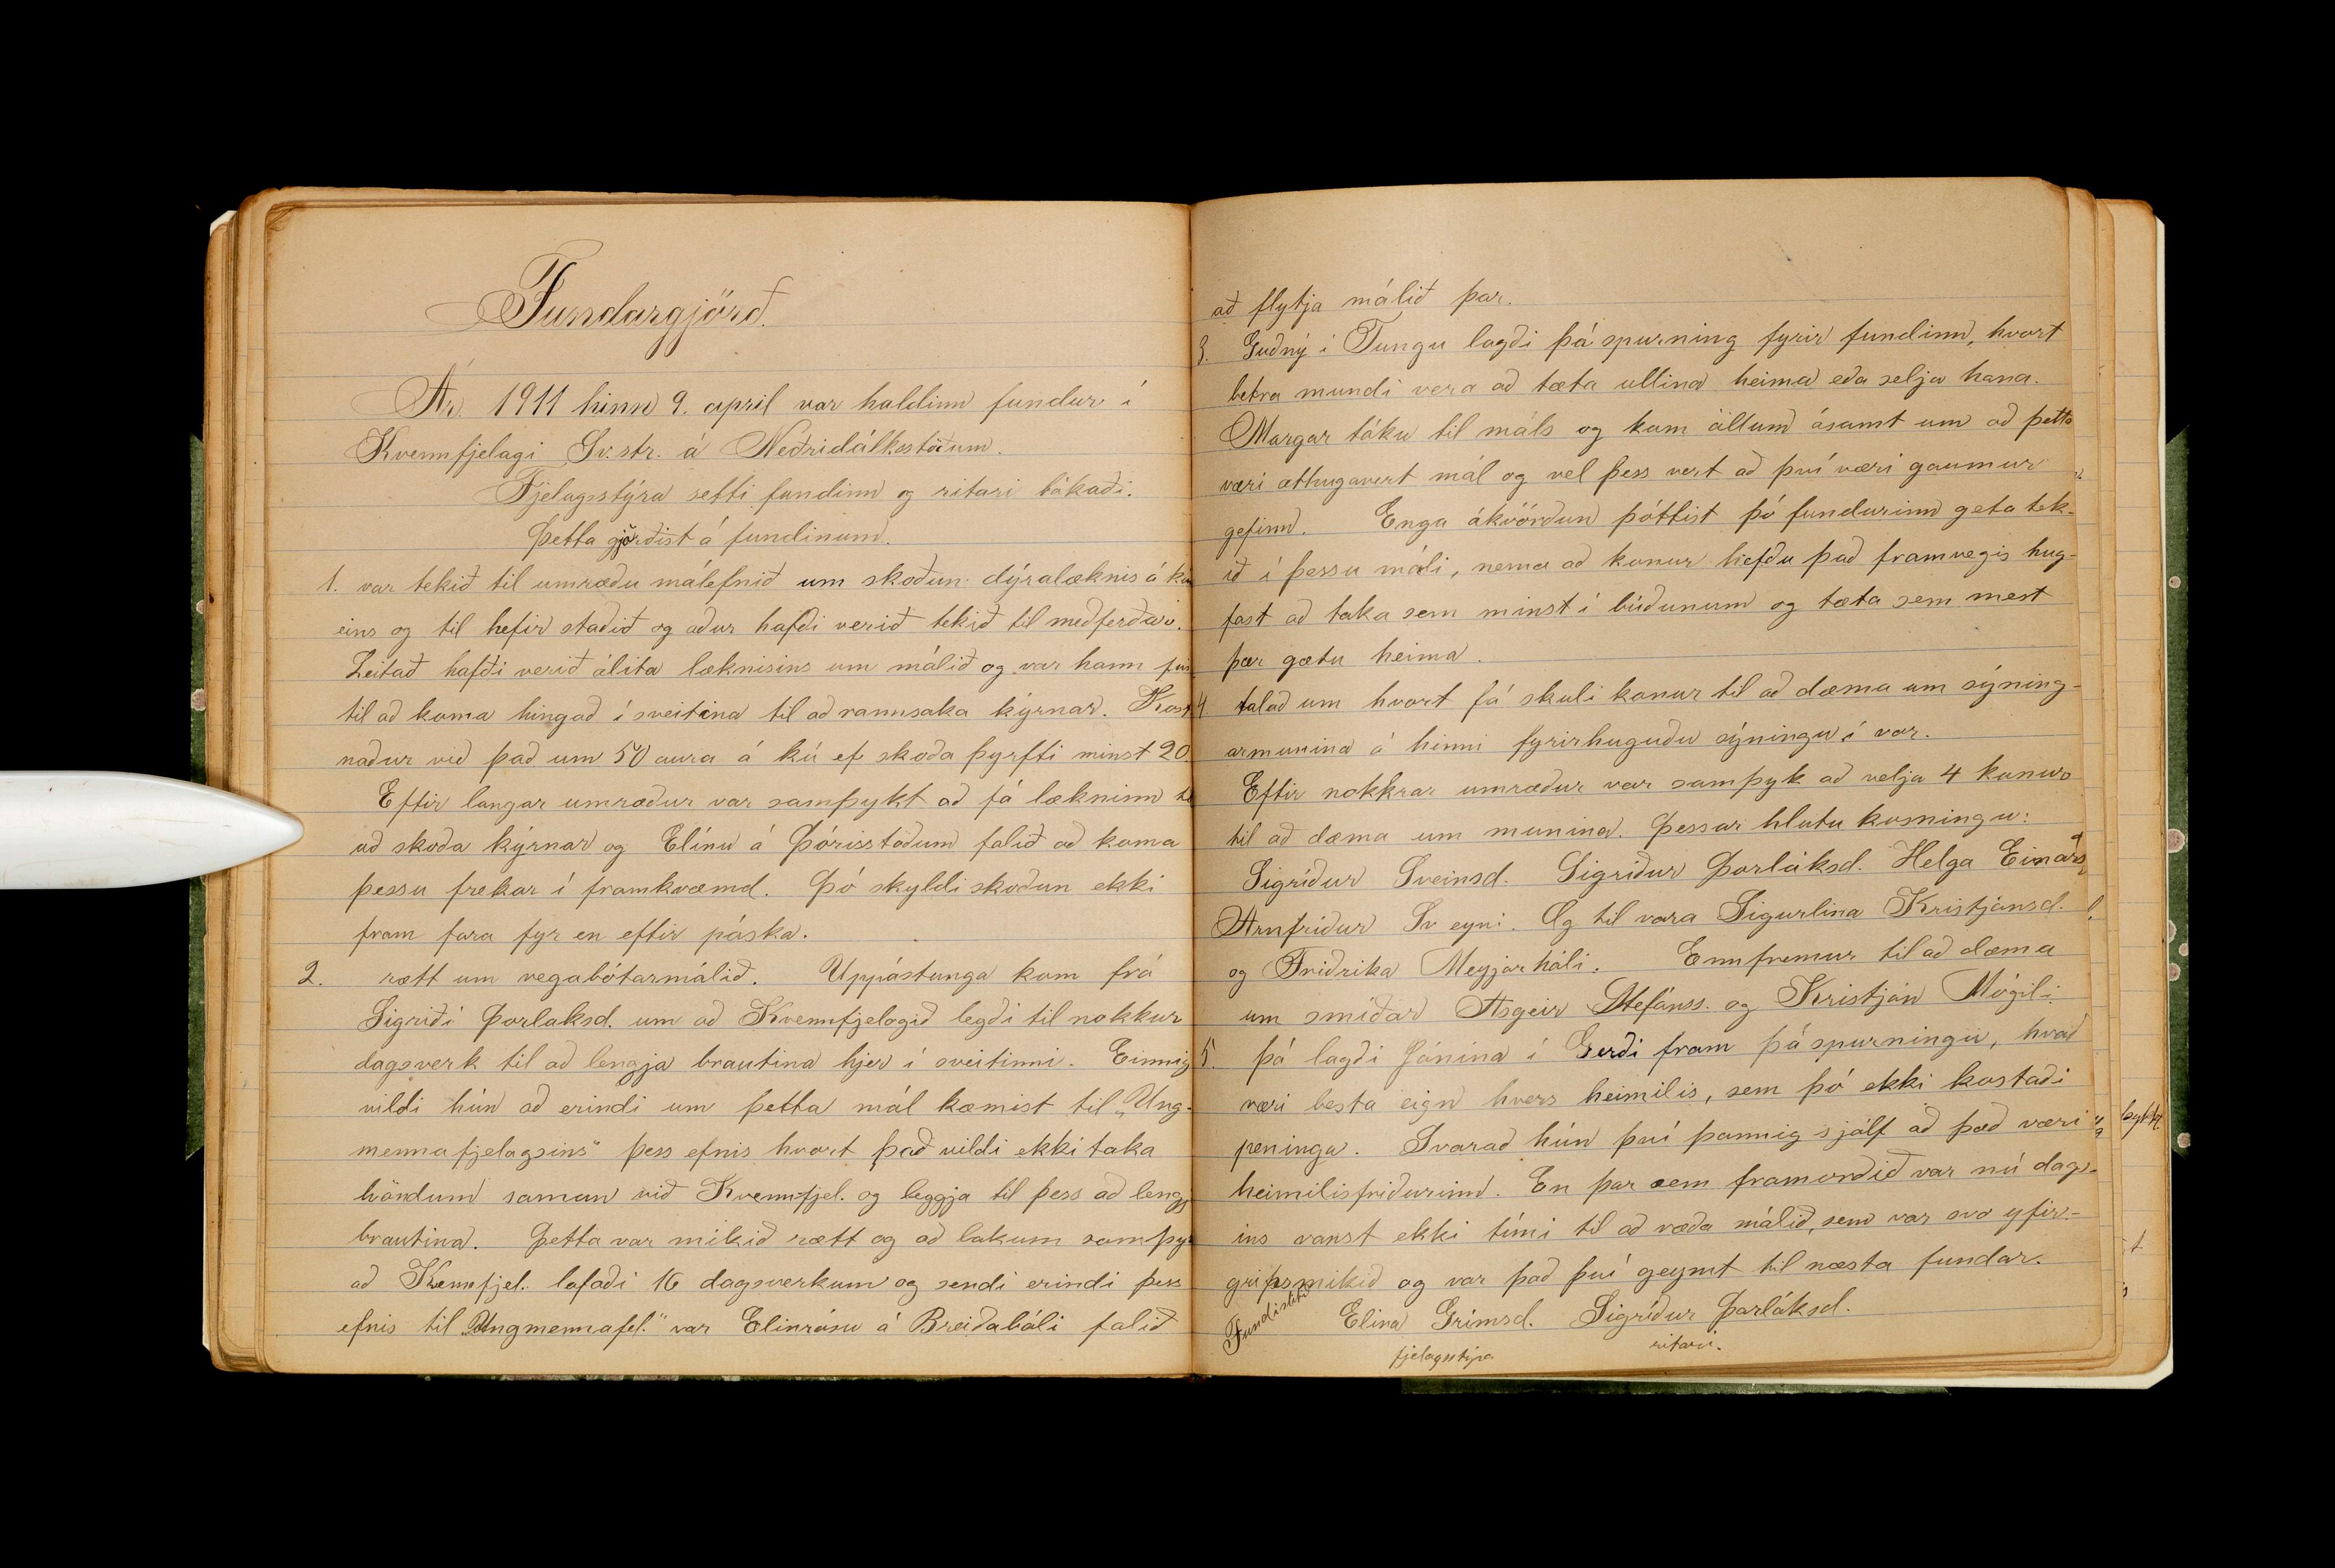 Fundargjörð.
Ár. 1911 hinn 9. april var haldinn fundur í
Kvennfjelagi Sv.str. á Neðridálksstöðum.
Fjelagsstýra setti fundinn og ritari bókaði.
Þetta gjörðist á fundinum.
1. var tekið til umræðu málefnið um skoðun dýralæknis á kú
eins og til hefir staðið og aður hafði verið tekið til meðferðar.
Leitað hafði verið álita læknisins um málið og var hann fús
til að koma hingað í sveitina til að rannsaka kýrnar. Kost
naður við það um 50 aura á kú ef skoða þyrfti minst 20
Eftir langar umræður var samþykt að fá lækninn til
að skoða kýrnar og Elínu á Þórisstöðum falið að koma
þessu frekar í framkvæmd. Þó skyldi skoðun ekki
fram fara fyr en eftir páska.
2. rætt um vegabótarmálið. Uppástunga kom frá
Sigriði Þorlaksd. um að Kvennfjelagið legði til nokkur
dagsverk til að lengja brautina hjer í sveitinni. Einnig
vildi hún að erindi um þetta mál kæmist til „Ung-
mennafjelagsins" þess efnis hvort það vildi ekki taka
höndum saman við Kvennfjel. og leggja til þess að lengj
brautina. Þetta var mikið rætt og að lokum samþy
að Kvennfjel. lofaði 16 dagsverkum og sendi erindi þess
efnis til „Ungmennafel." var Elinrósu á Breiðabóli falið
að flytja málið þar.
3. Guðný í Tungu lagði þá spurning fyrir fundinn, hvort
betra mundi vera að tæta ullina heima eða selja hana.
Margar tóku til máls og kom öllum ásamt um að þetta
væri athugavert mál og vel þess vert að því væri gaumur
gefinn. Enga ákvörðun þóttist þó fundurinn geta tek-
ið í þessu máli, nema að konur hefðu það framvegis hug-
fast að taka sem minst í búðunum og tæta sem mest
þær gætu heima.
4. talað um hvort fá skuli konur til að dæma um sýning-
armunina á hinni fyrirhuguðu sýningu í vor.
Eftir nokkrar umræður var samþyk að velja 4 konur
til að dæma um munina. Þessar hlutu kosningu:
Sigríður Sveinsd. Sigríður Þorláksd. Helga Einarsd
Arnfríður Sv eyri. Og til vara Sigurlina Kristjánsd.
og Friðrika Meyjarhóli. Ennfremur til að dæma
um smíðar Asgeir Stefánss. og Kristján Mógili
5. þá lagði Jónína í Gerði fram þá spurningu, hvað
væri besta eign hvers heimilis, sem þó ekki kostaði
peninga. Svarað hún því þannig sjálf að það væri
heimilisfriðurinn. En þar sem framorðið var nú dags-
ins vanst ekki tími til að ræða málið, sem var svo yfir-
gripsmikið og var það því geymt til næsta fundar.
Fundi slitið
Elina Grímsd. Sigríður Þorláksd.
fjelagsstýra ritari.